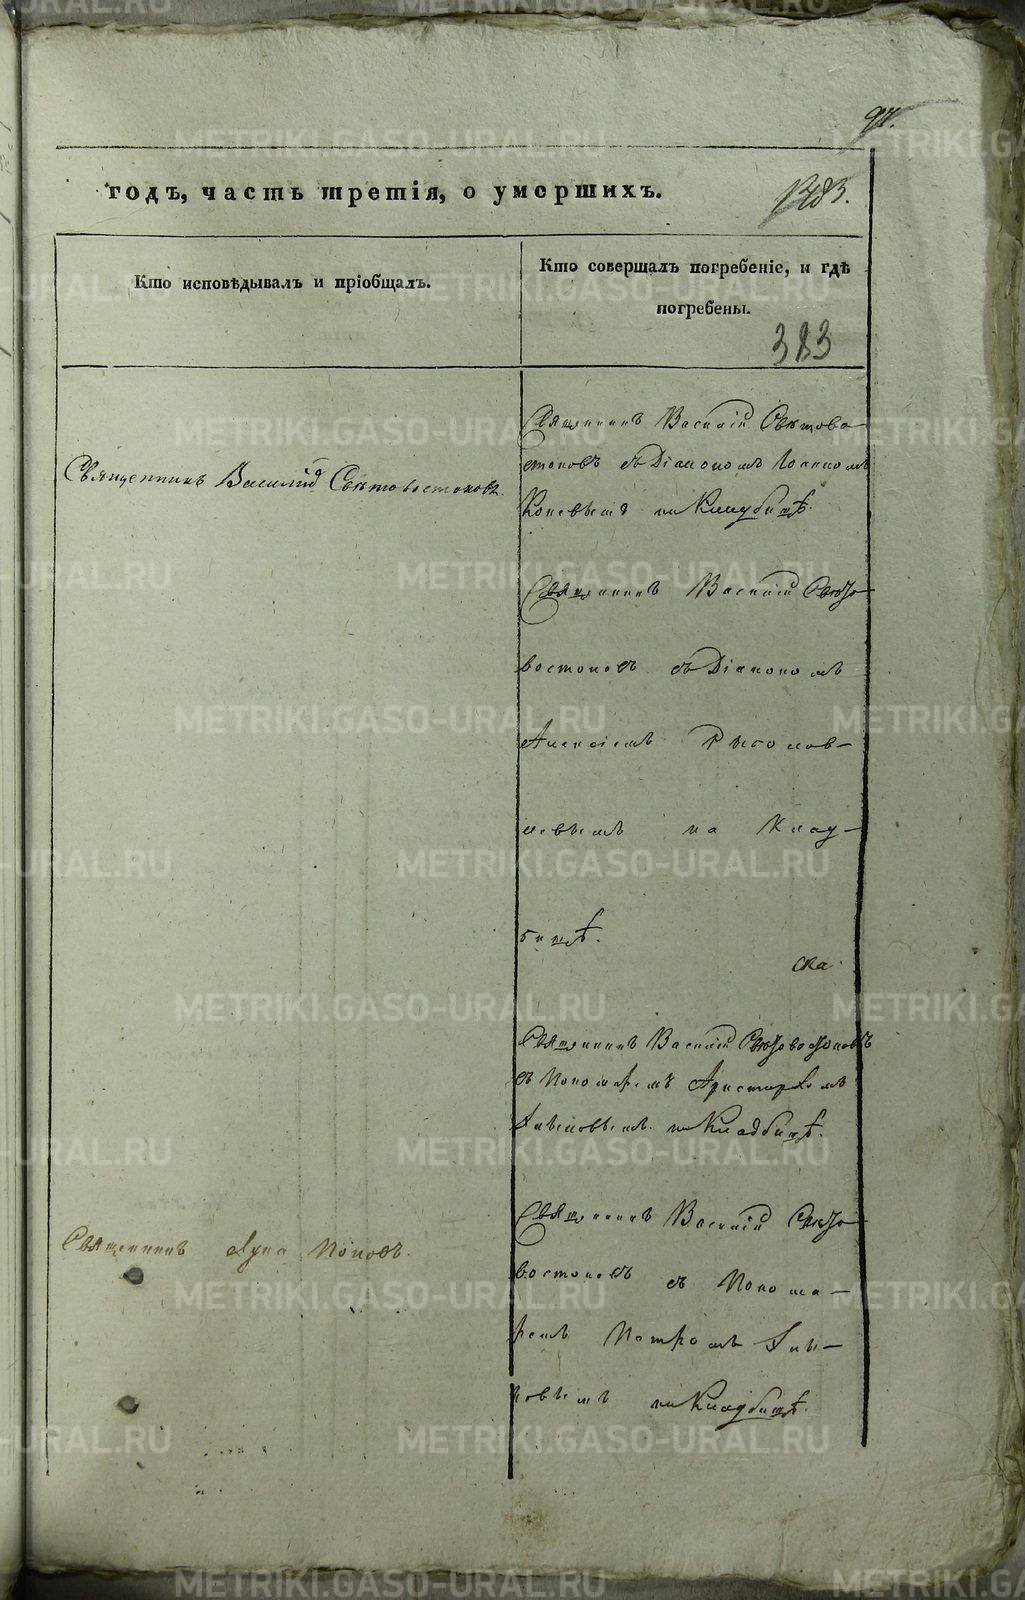 годъ, часть третія, о умершихъ.
1383.
Кто исповѣдывалъ и пріобщалъ.
Кто совершалъ погребеніе, и гдѣ
погребены.
383
Священникъ Василій Свѣтовостоковъ.
Священникъ Василій Свѣтово-
стоковъ съ Діакономъ Іоанномъ
Коневымъ на Кладбищѣ.
Священникъ Василій Свѣто-
востоковъ съ Діакономъ
Алексіемъ
на Клад-
бищѣ.
ска
Священникъ Василій Свѣтовостоковъ
съ Пономаремъ Аристархомъ
на Кладбищѣ.
Священникъ Лука Поповъ.
Священникъ Василій Свѣто-
востоковъ съ Понома-
ремъ Петромъ
новымъ на Кладбищѣ.
METRIKI.GASO-URAL.RU